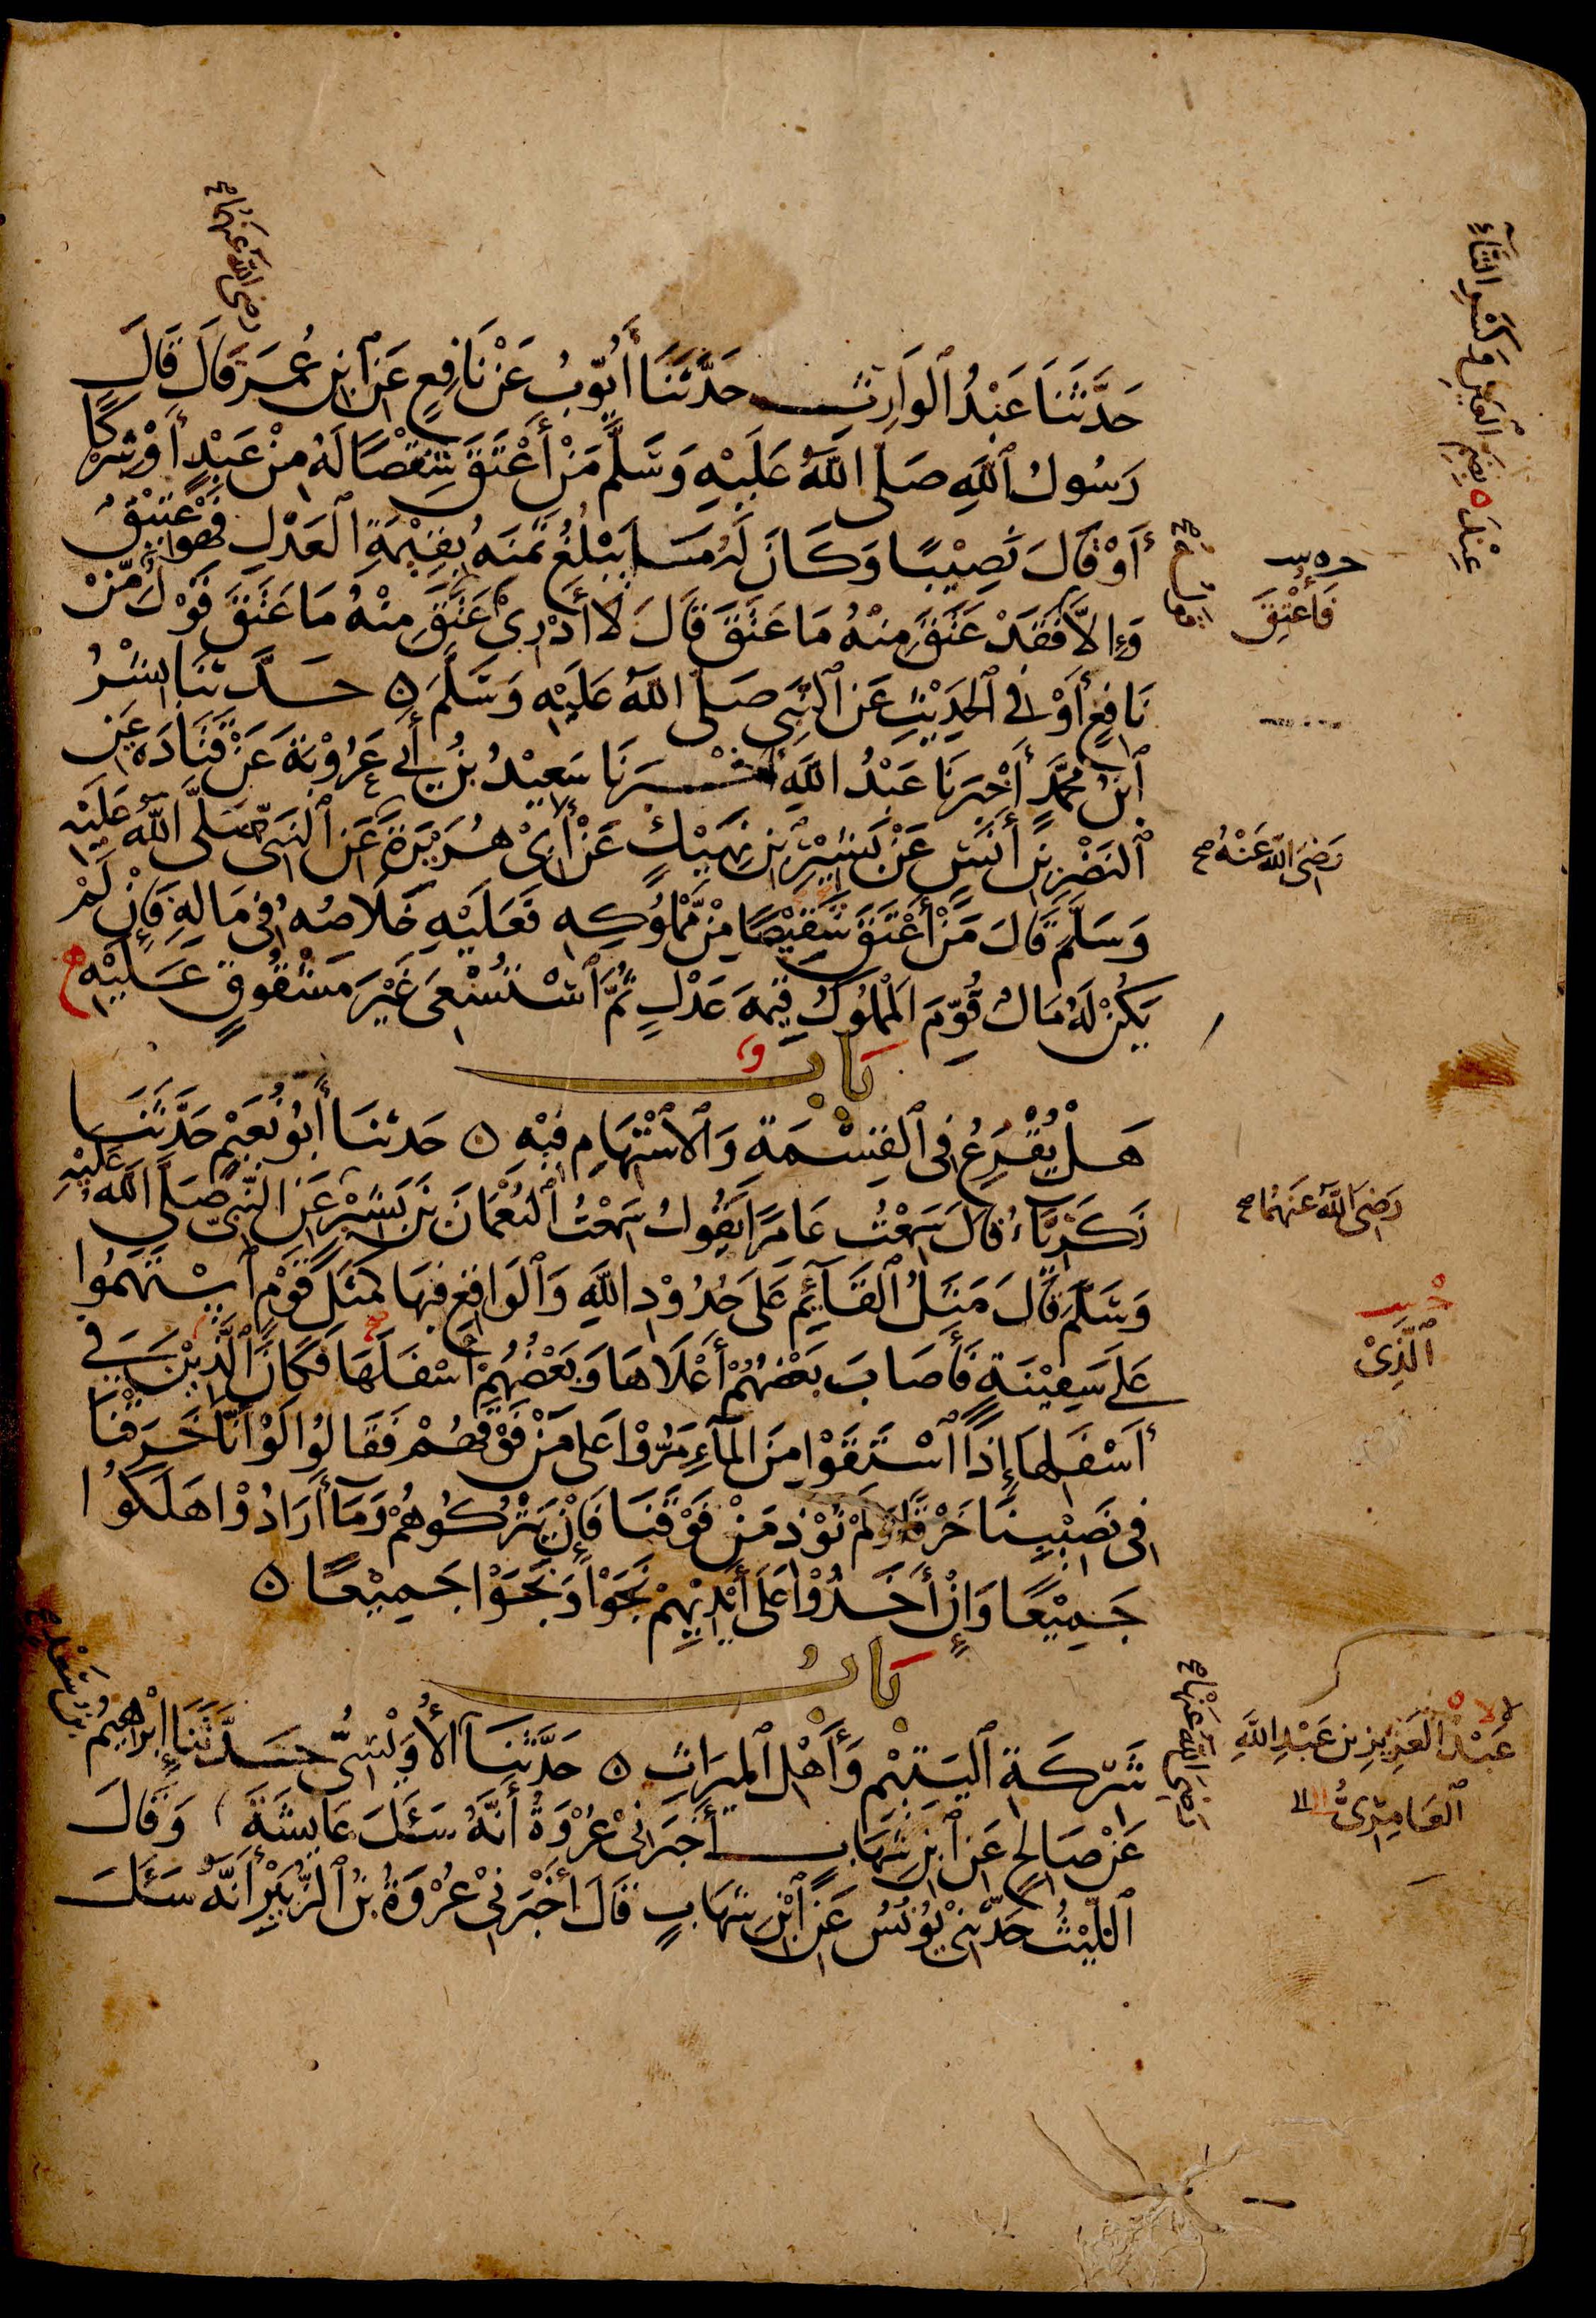 حَدَّثَنَا عَبْدُ ٱلْوَارِثِ حَدَّثَنَا أَيُّوبُ عَنْ نَافِعٍ عَنِ ٱبْنِ عُمَرَ قَالَ قَالَ
رضى الله عنهما
رَسُولُ ٱللَّهِ صَلَّى ٱللَّهُ عَلَيْهِ وَسَلَّمَ مَنْ أَعْتَقَ شِقْصًا لَهُ مِنْ عَبْدٍ أَوْ شِرْكًا
أَوْ قَالَ نَصِيْبًا وَكَانَ لَهُ مَا يَبْلُغُ ثَمَنَهُ بِقِيْمَةِ ٱلْعَدْلِ فَهْوَ عَتِيْقٌ
وَإِلَّا فَقَدْ عَتَقَ مِنْهُ مَا عَتَقَ قَالَ لَا أَدْرِىْ عَتَقَ مِنْهُ مَا عَتَقَ قَوْلٌ مِّنْ
فَأُعْتِقَ
نَافِعٍ أَوْ فِي ٱلْحَدِيْثِ عَنِ ٱلنَّبِىِّ صَلَّى اللَّهُ عَلَيْهِ وَسَلَّمَ ٥ حَدَّثَنَا بِشْرُ
ٱبْنُ مُحَمَّدٍ أَخْبَرَنَا عَبْدُ اللَّهِ أَخْبَرَنَا سَعِيْدُ بْنُ أَبِي عَرُوْبَةَ عَنْ قَتَادَةَ عَنِ
ٱلنَّضْرِ بْنِ أَنَسٍ عَنْ بَشِيْرِ بْنِ نَهِيْكٍ عَنْ أَبِىْ هُرَيْرَةَ عَنِ ٱلنَّبِىِّ صَلَّى اللَّهُ عَلَيْهِ
رَضِىَ اللَّهُ عَنْهُ
وَسَلَّمَ قَالَ مَنْ أَعْتَقَ شَقِيْصًا مِنْ مَّمْلُوكِهِ فَعَلَيْهِ خَلَاصُهُ فِى مَالِهِ فَإِنْ لَمْ
يَكُنْ لَهُ مَالٌ قُوِّمَ ٱلْمَمْلُوكُ قِيمَةَ عَدْلٍ ثُمَّ ٱسْتُسْعِىَ غَيْرَ مَشْقُوقٍ عَلَيْهِ
بَابٌ
هَلْ يُقْرَعُ فِى ٱلْقِسْمَةِ وَٱلْاسْتِهَامِ فِيْهِ ٥ حَدثنَا أَبُو نُعَيْمٍ حَدَّثَنَا
زَكَرِيَّاءُ قَالَ سَمِعْتُ عَامِرًا يَقُولُ سَمِعْتُ ٱلنُّعْمَانَ بْنَ بَشِيْرٍ عَنِ النَّبِىِّ صَلَّى اللَّهُ عَلَيْهِ
رَضِىَ اللَّهُ عَنْهُمَا
وَسَلَّمَ قَالَ مَثَلُ ٱلْقَآئِمِ عَلَى حُدُوْدِ اللَّهِ وَٱلْوَاقِعِ فِيهَا كَمَثَلِ قَوْمٍ ٱسْتَهَمُوا
عَلَى سَفِيْنَةٍ فَأَصَابَ بَعْضُهُمْ أَعْلَاهَا وَبَعْضُهُمْ أَسْفَلَهَا فَكَانَ ٱلَّذِيْنَ فِي
ٱلَّذِىْ
أَسْفَلِهَا إِذَا ٱسْتَقَوْا مِنَ الْمَآءِ مَرُّوْا عَلَى مَنْ فَوْقَهُمْ فَقَالُوا لَوْ أَنَّا خَرَقْنَا
فِى نَصِيْبِنَا خَرْقًا وَلَمْ نُوْذِ مَنْ فَوْقَنَا فَإِنْ يَتْرُكُوهُمْ وَمَا أَرَادُوْا هَلَكُوا
جَمِيْعًا وَإِنْ أَخَذُوْا عَلَى أَيْدِيْهِمْ نَجَوْا وَنَجَوْا جَمِيْعًا ٥
بَابُ
شَرِكَةِ ٱلْيَتِيْمِ وَأَهْلِ ٱلْمِيرَاثِ ٥ حَدَّثَنَا ٱلْأُوَيْسِىُّ حَدَّثَنَا إِبْرَاهِيمُ
بْنُ سَعْدٍ
عَبْدُ الْعَزِيزِ بن عَبْدِ اللَّهِ
ٱلْعَامِرِىُّ
رَضِىَ اللَّهُ عَنْهَا
عَنْ صَالِحٍ عَنِ ٱبْنِ شِهَابٍ أَخْبَرَنِىْ عُرْوَةُ أَنَّهُ سَئَلَ عَايِشَةَ وَقَالَ
ٱللَّيْثُ حَدَّثَنِىْ يُوْنُسُ عَنِ ٱبْنِ شِهَابٍ قَالَ أَخْبَرَنِىْ عُرْوَةُ بْنُ ٱلزُّبَيْرِ أَنَّهُ سَئَلَ